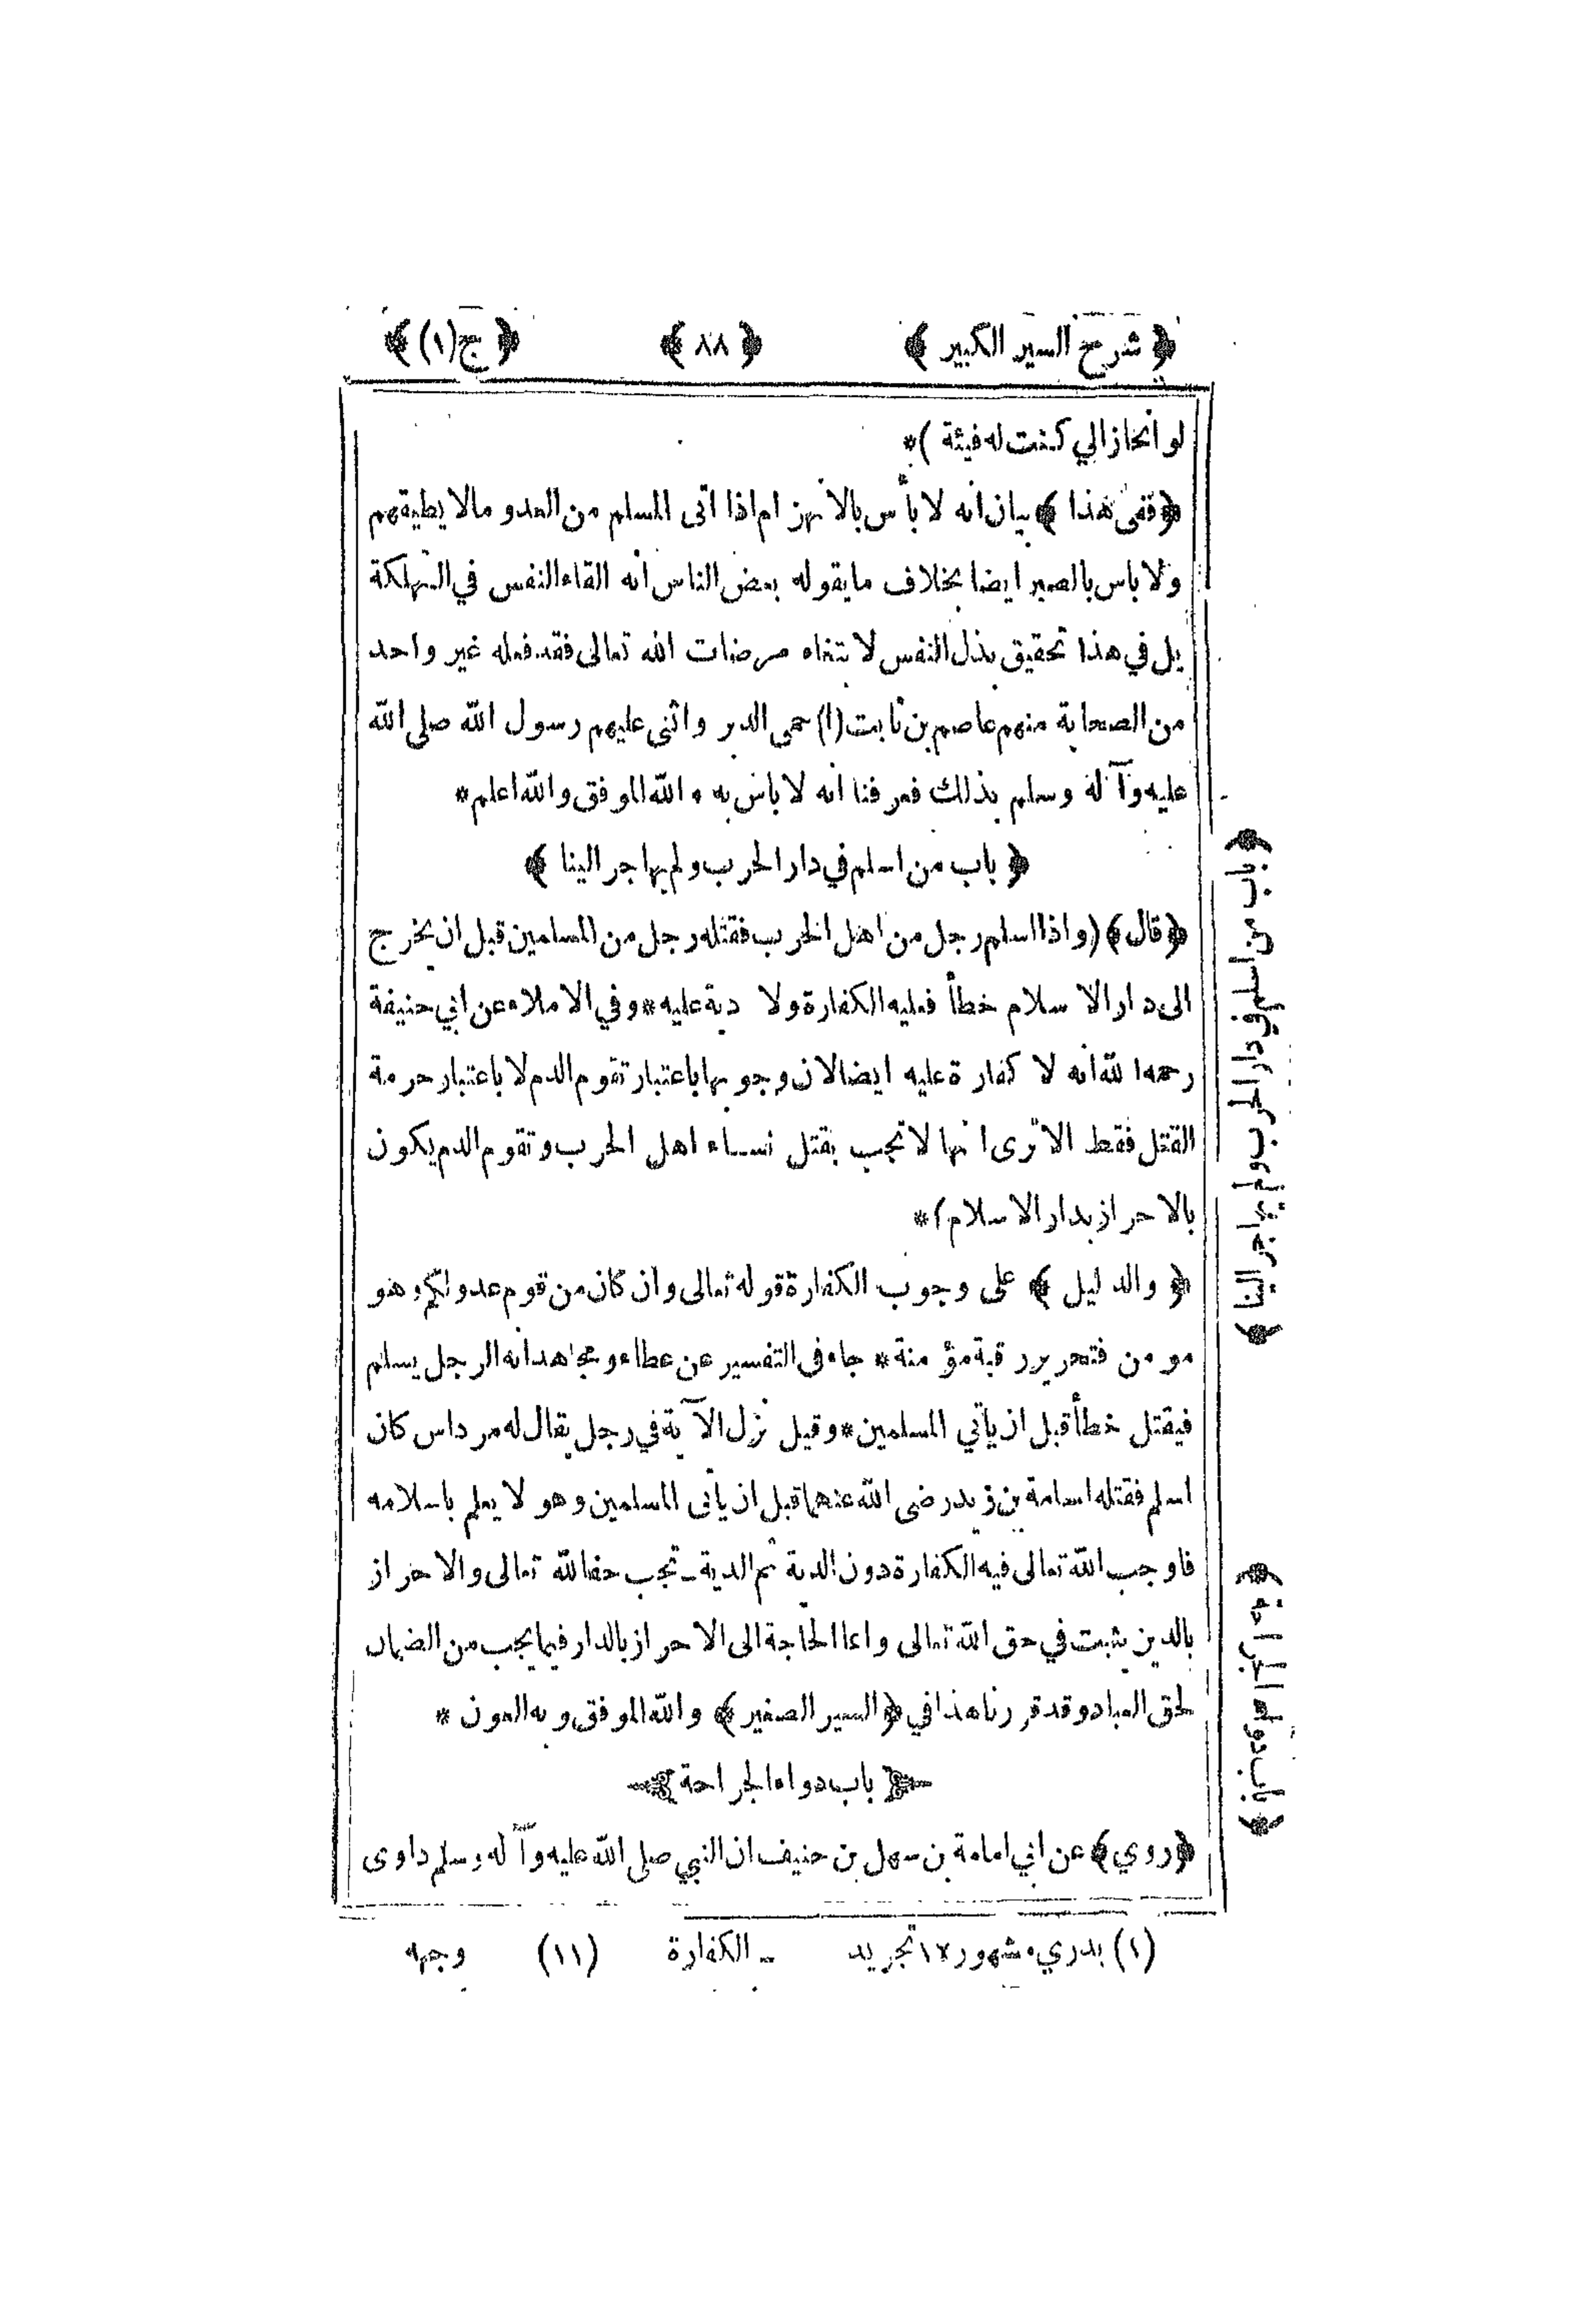 ﴿ شرح السير الكبير ﴾ ﴿ ٨٨ ﴾ ﴿ ج(١) ﴾
لو انحاز الي كنت له فيئة )*
﴿ ففى هذا ﴾ بيان انه لا بأس بالانهزام اذا اتى المسلم من العدو مالا يطيقهم
ولا باس بالصبر ايضا بخلاف ما يقوله بعض الناس انه القاء النفس في التهلكة
بل في هذا تحقيق بذل النفس لابتغاء مرضات الله تعالى فقد فعله غير واحد
من الصحابة منهم عاصم بن ثابت (١) حمى الدبر واثنى عليهم رسول الله صلى الله
عليه وآله وسلم بذلك فعرفنا انه لا باس به * والله الموفق والله اعلم *
﴿ باب من اسلم في دار الحرب ولم يهاجر الينا ﴾
﴿ قال ﴾ (واذا اسلم رجل من اهل الحرب فقتله رجل من المسلمين قبل ان يخرج
الى دار الاسلام خطأ فعليه الكفارة ولا دية عليه * وفي الاملاء عن ابي حنيفة
رحمه الله انه لا كفارة عليه ايضا لان وجوبها باعتبار تقوم الدم لا باعتبار حرمة
القتل فقط الا ترى انها لا تجب بقتل نساء اهل الحرب وتقوم الدم يكون
بالاحراز بدار الاسلام) *
﴿ والدليل ﴾ على وجوب الكفارة قوله تعالى وان كان من قوم عدو لكم وهو
مومن فتحرير رقبة مؤمنة * جاء فى التفسير عن عطاء ومجاهد انه الرجل يسلم
فيقتل خطأ قبل ان يأتي المسلمين * وقيل نزل الآية في رجل يقال له مرداس كان
اسلم فقتله اسامة بن زيد رضى الله عنهما قبل ان يأتى المسلمين وهو لا يعلم باسلامه
فاوجب الله تعالى فيه الكفارة دون الدية ثم الدية ـ تجب حقا لله تعالى والاحراز
بالدين يثبت في حق الله تعالى وانما الحاجة الى الاحراز بالدار فيما يجب من الضمان
لحق العباد وقد قررنا هذا في ﴿ السير الصغير ﴾ والله الموفق وبه العون *
﴿ باب دواء الجراحة ﴾
﴿ روي ﴾ عن ابي امامة بن سهل بن حنيف ان النبي صلى الله عليه وآله وسلم داوى
(١) بدري مشهور ١٢ تجريد ـ الكفارة (١١) وجهه
﴿ باب من اسلم في دار الحرب ولم يهاجر الينا ﴾
﴿ باب دواء الجراحة ﴾